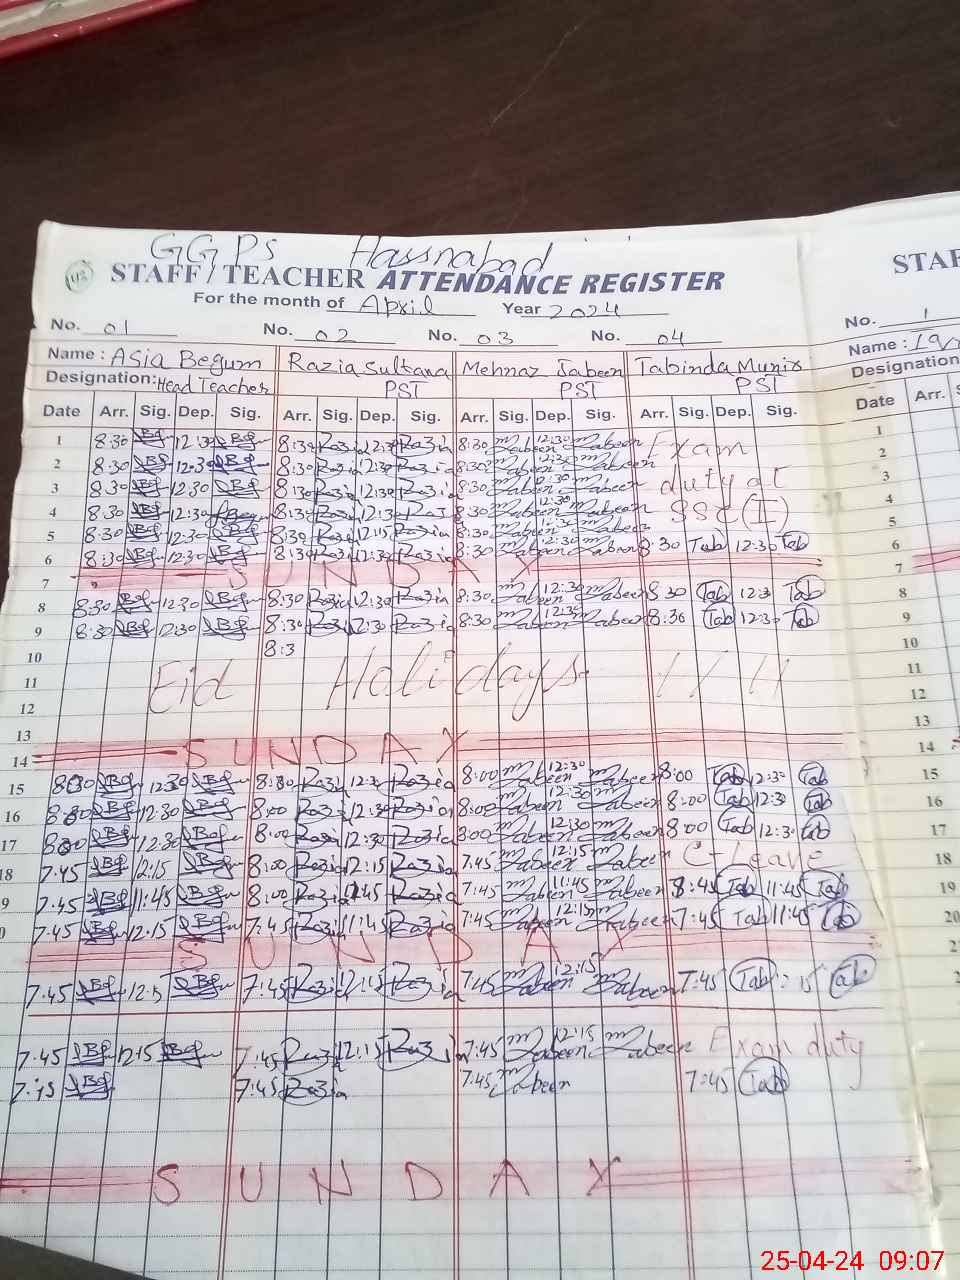 GGPS Hassnabad
STAFF / TEACHER ATTENDANCE REGISTER STAF
For the month of April Year 2024
No. 01 No. 02 No. 03 No. 04 No. 1
Name : Asia Begum Razia Sultana Mehnaz Jabeen Tabinda Munir Name :
Designation: Head Teacher PST PST PST Designation
Date Arr. Sig. Dep. Sig. Arr. Sig. Dep. Sig. Arr. Sig. Dep. Sig. Arr. Sig. Dep. Sig. Date Arr. S
1 8:30 12:30 8:30 Razia 12:30 Razia 8:30 Jabeen 12:30 Jabeen Exam 1
2 8:30 12:30 8:30 Razia 12:30 Razia 8:30 Jabeen 12:30 Jabeen 2
3 8:30 12:30 8:30 Razia 12:30 Razia 8:30 Jabeen 12:30 Jabeen duty at 3
4 8:30 12:30 8:30 Razia 12:30 Razia 8:30 Jabeen 12:30 Jabeen SSC(II) 4
5 8:30 12:30 8:30 Razia 12:15 Razia 8:30 Jabeen 12:30 Jabeen 5
6 8:30 12:30 8:30 Razia 12:30 Razia 8:30 Jabeen 12:30 Jabeen 8 30 Tab 12:30 Tab 6
7 SUNDAY 7
8 8:30 12:30 8:30 Razia 12:30 Razia 8:30 Jabeen 12:30 Jabeen 8 30 Tab 12:3 Tab 8
9 8:30 12:30 8:30 Razia 12:30 Razia 8:30 Jabeen 12:30 Jabeen 8:30 Tab 12:30 Tab 9
10 8:3 10
11 Eid Holidays 11
12 12
13 13
14 SUNDAY 14
15 12:30 8:30 Razia 12:30 Razia 8:00 Jabeen 12:30 Jabeen 8:00 Tab 12:30 Tab 15
16 12:30 8:00 Razia 12:30 Razia 8:00 Jabeen 12:30 Jabeen 8:00 Tab 12:30 Tab 16
17 12:30 8:00 Razia 12:30 Razia 8:00 Jabeen 12:30 Jabeen 8:00 Tab 12:30 Tab 17
18 7:45 12:15 8:00 Razia 12:15 Razia 7:45 Jabeen 12:15 Jabeen C-Leave 18
9 7:45 11:45 8:00 Razia 11:45 Razia 7:45 Jabeen 11:45 Jabeen 8:45 Tab 11:45 Tab 19
0 7:45 12:15 7:45 Razia 11:45 Razia 7:45 Jabeen 12:15 Jabeen 7:45 Tab 11:45 Tab 20
SUNDAY 2
7:45 12:15 7:45 Razia 12:15 Razia 7:45 Jabeen 12:15 Jabeen 7:45 Tab 15 Tab
7:45 12:15 7:45 Razia 12:15 Razia 7:45 Jabeen 12:15 Jabeen Exam duty
7:45 Razia 7:45 Jabeen 7:45 Tab
SUNDAY
25-04-24 09:07